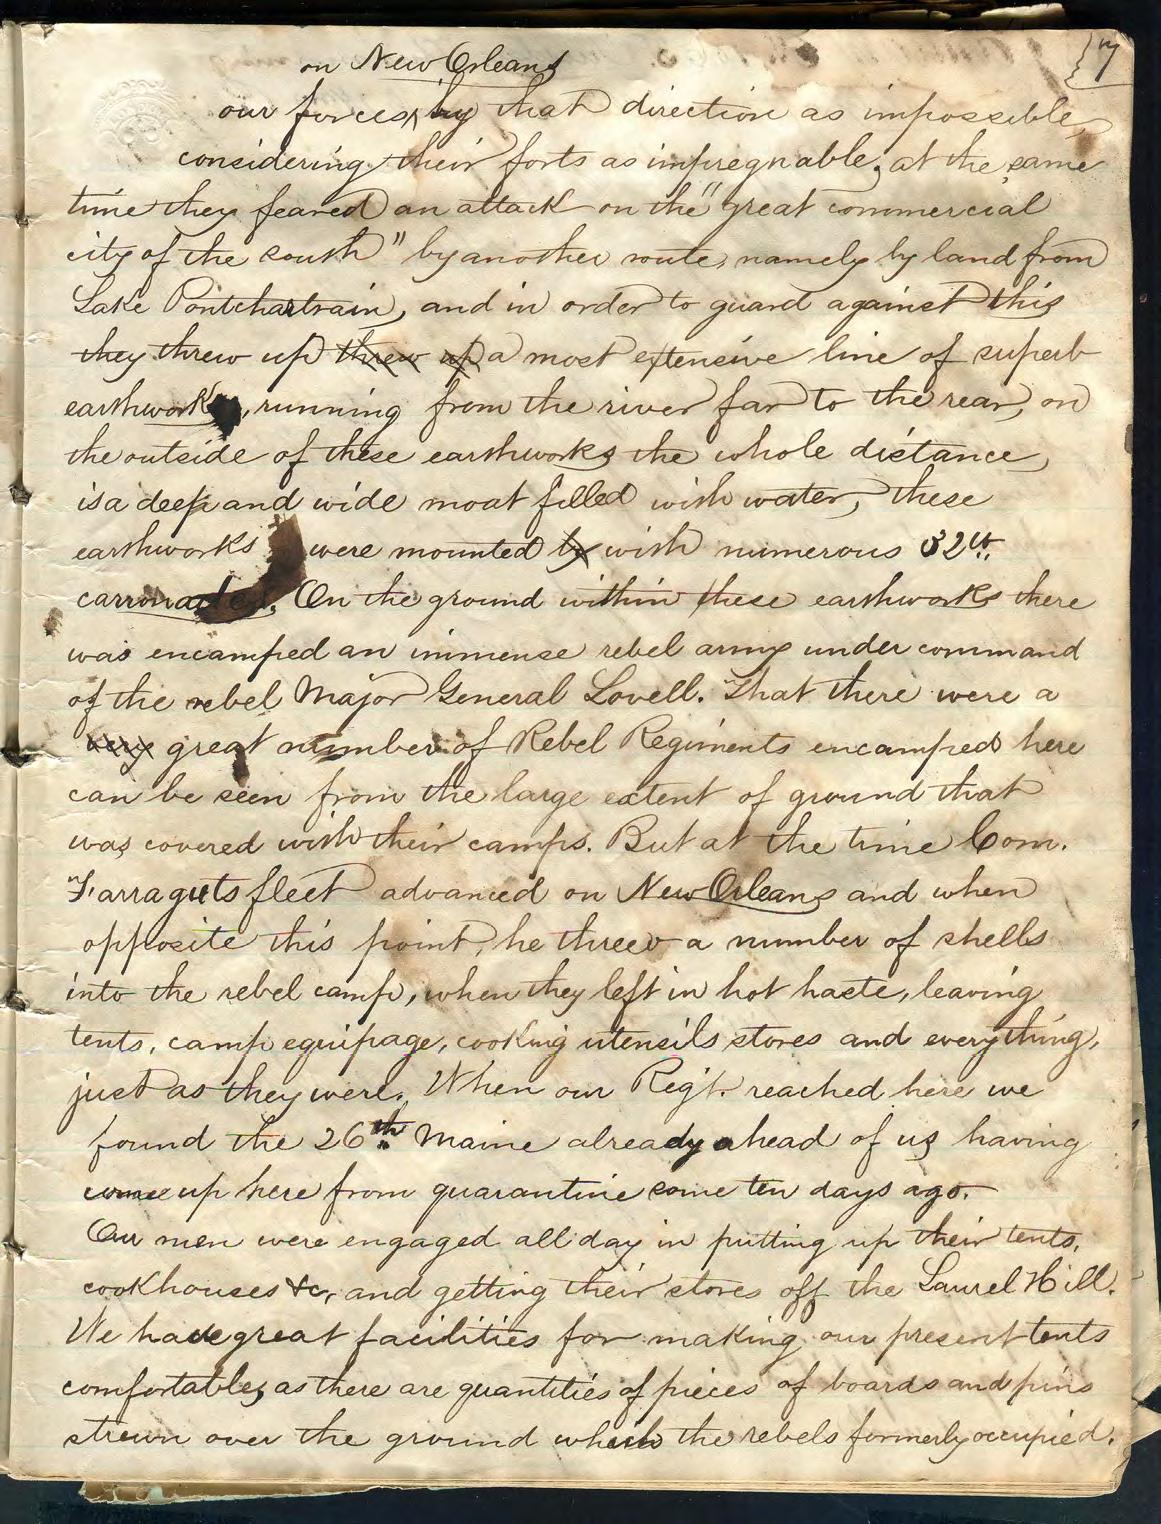 7
on New Orleans
our forces, by that direction as impossible,
considering their forts as impregnable, at the same
time they feared an attack on the "great commercial
city of the south" by another route, namely by land from
Lake Pontchartrain, and in order to guard against this
they threw up threw up a most extensive line of superb
earthworks, running from the river far to the rear, on
the outside of these earthworks the whole distance,
is a deep and wide moat filled with water, these
earthworks were mounted by with numerous 32 
carronades. On the ground within these earthworks there
was encamped an immense rebel army under command
of the rebel Major General Lovell. That there were a
very great number of Rebel Regiments encamped here
can be seen from the large extent of ground that
was covered with their camps. But at the time Com.
Farraguts fleet advanced on New Orleans and when
opposite this point, he threw a number of shells
into the rebel camp, when they left in hot haste, leaving
tents, camp equipage, cooking utensils stores and everything,
just as they were. When our Reg't. reached here we
found the 26th Maine already ahead of us having
come up here from quarantine some ten days ago.
Our men were engaged all day in putting up their tents,
cookhouses &c, and getting their stores off the Laurel Hill.
We have great facilities for making our present tents
comfortable, as there are quantities of pieces of boards and pins
strewn over the ground which the rebels formerly occupied.